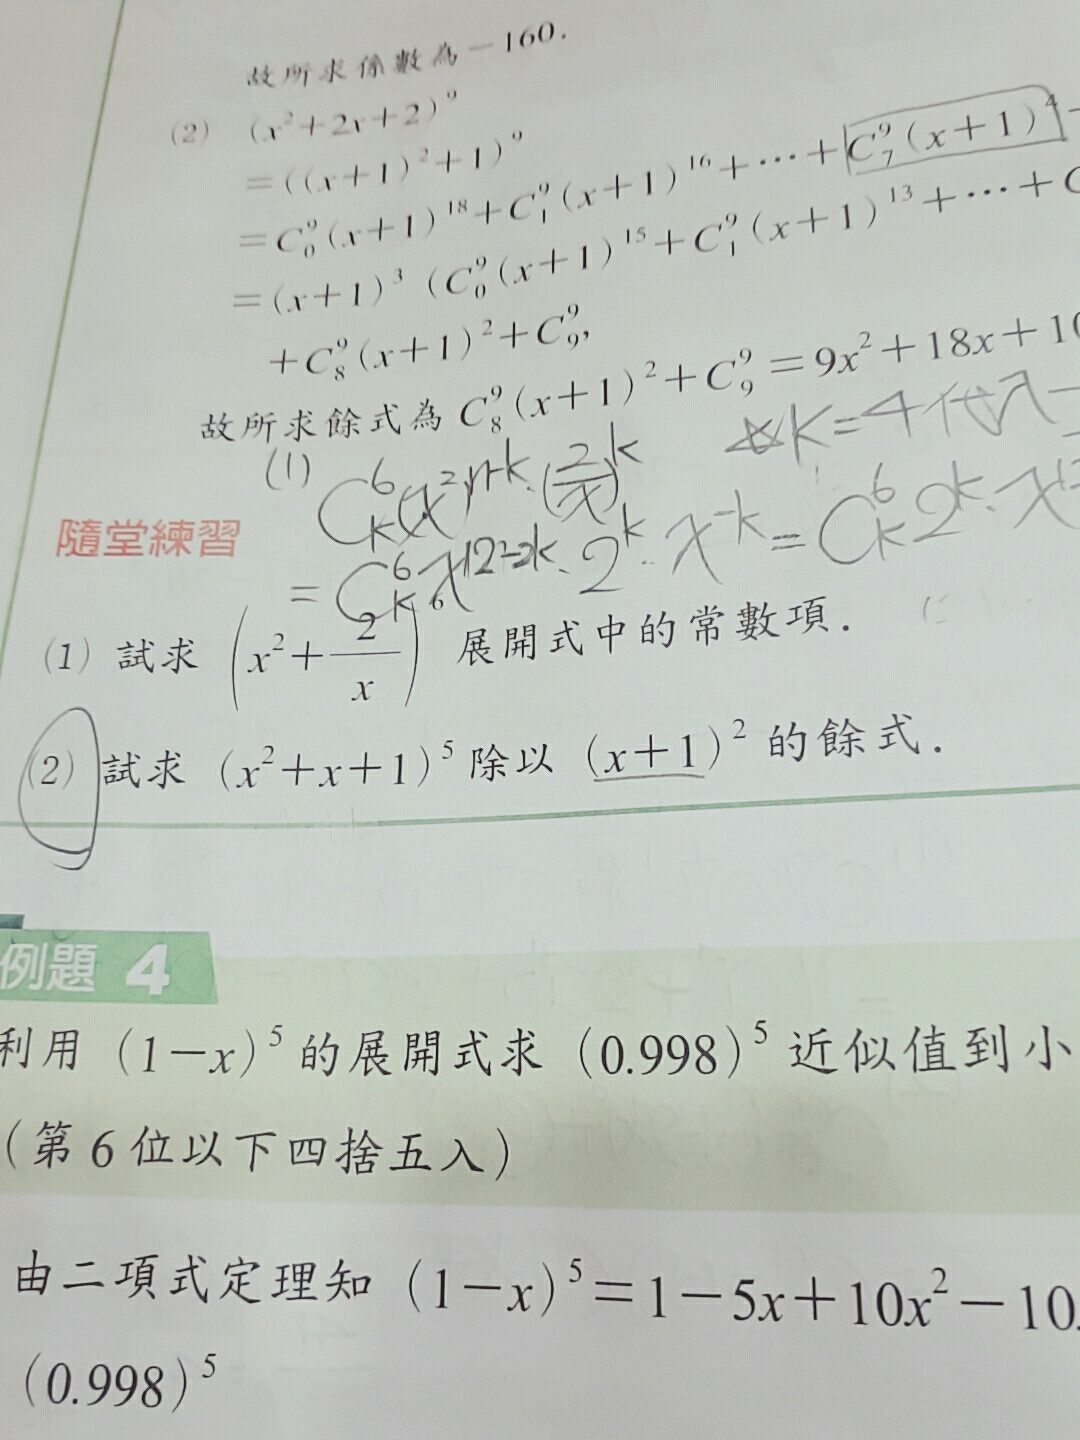 故所求係數為－160.
(2) (x²+2x+2)⁹
=((x+1)²+1)⁹
=C⁹₀(x+1)¹⁸+C⁹₁(x+1)¹⁶+⋯+C⁹₇(x+1)⁴
=(x+1)³(C⁹₀(x+1)¹⁵+C⁹₁(x+1)¹³+⋯+C
+C⁹₈(x+1)²+C⁹₉,
故所求餘式為 C⁹₈(x+1)²+C⁹₉=9x²+18x+10
k=4代入
(1) C⁶ₖ(x²)ⁿ⁻ᵏ·(2/x)ᵏ
=C⁶ₖx¹²⁻²ᵏ·2ᵏ·x⁻ᵏ=C⁶ₖ2ᵏ·x
隨堂練習
(1) 試求 (x²+2/x)⁶ 展開式中的常數項.
(2) 試求 (x²+x+1)⁵ 除以 (x+1)² 的餘式.
例題 4
利用 (1－x)⁵ 的展開式求 (0.998)⁵ 近似值到小
(第 6 位以下四捨五入)
由二項式定理知 (1－x)⁵=1－5x+10x²－10
(0.998)⁵